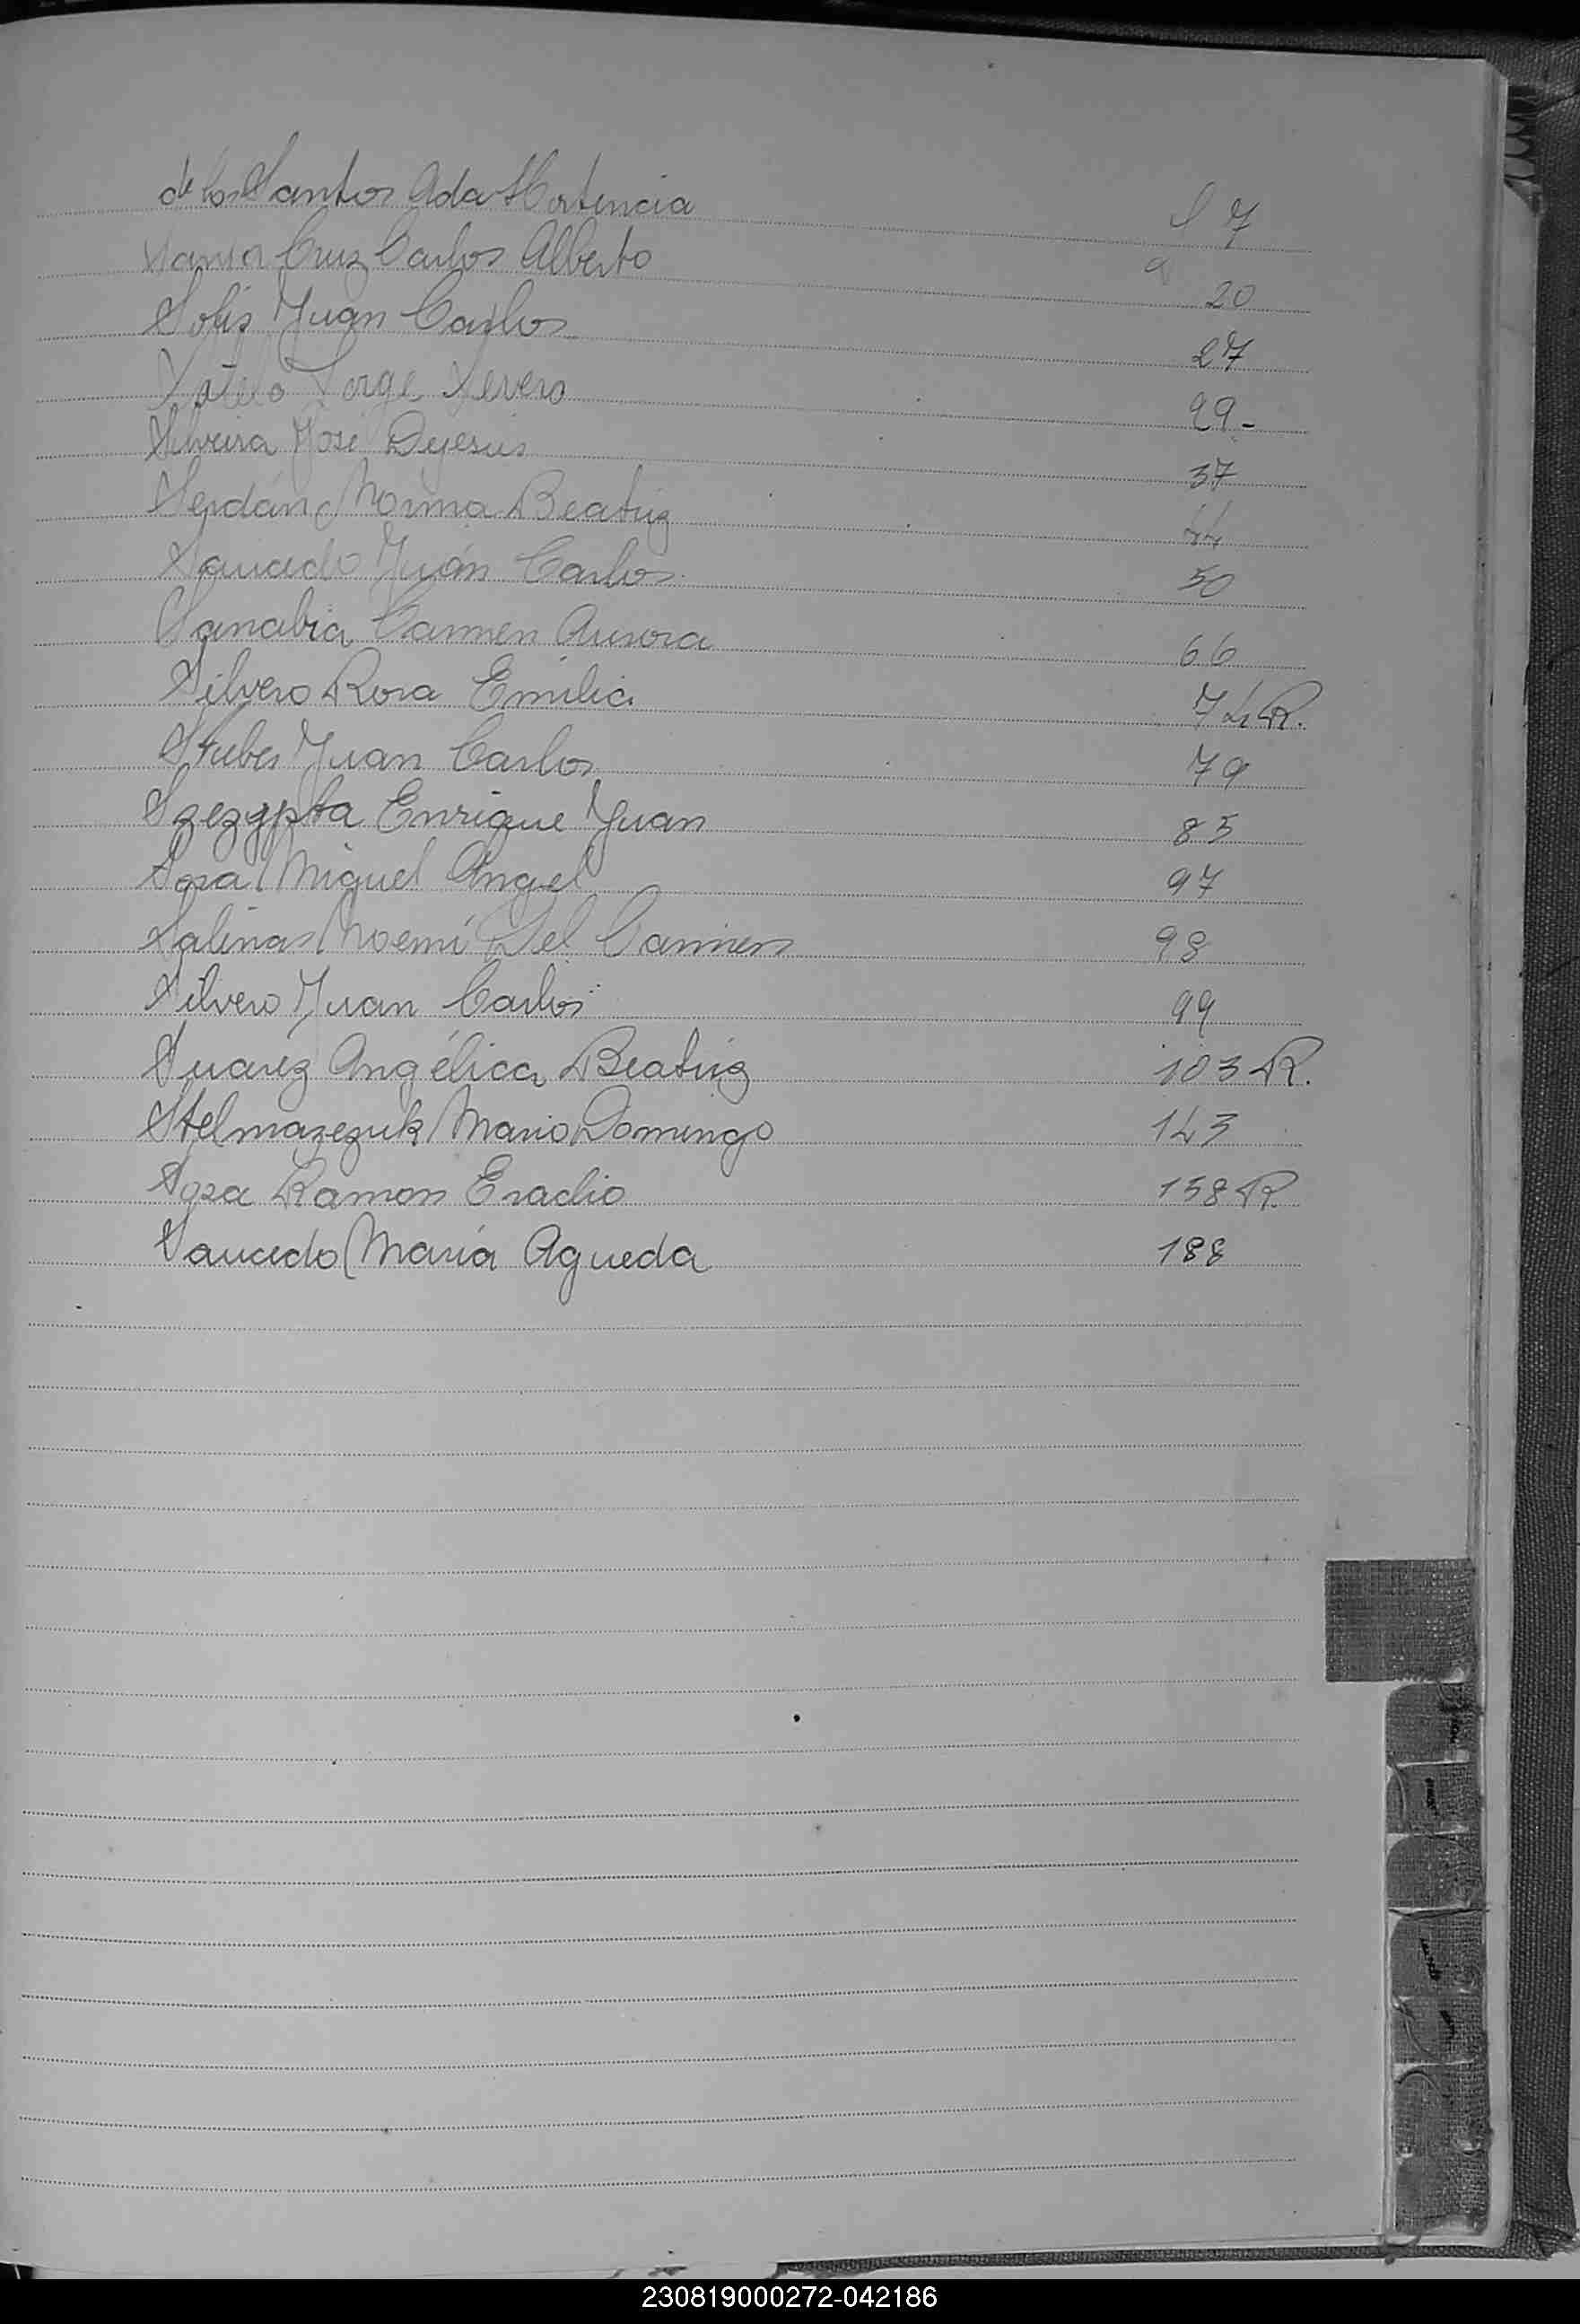 de los Santos Ada Hortencia 7
Santa Cruz Carlos Alberto 20
Solis Juan Carlos 27
Sotelo Jorge Severo 29-
Silveira José Dejesus 37
Serdán Norma Beatriz 44
Saucedo Juan Carlos 50
Sanabria Carmen Aurora 66
Silvero Rosa Emilia 74 R.
Stubes Juan Carlos 79
Szezypta Enrique Juan 85
Sosa Miguel Angel 97
Salinas Noemí Del Carmen 98
Silvero Juan Carlos 99
Suarez Angélica Beatriz 103 R.
Stelmazezuk Mario Domingo 143
Sosa Ramon Eradio 158 R.
Saucedo María Agueda 188
230819000272-042186